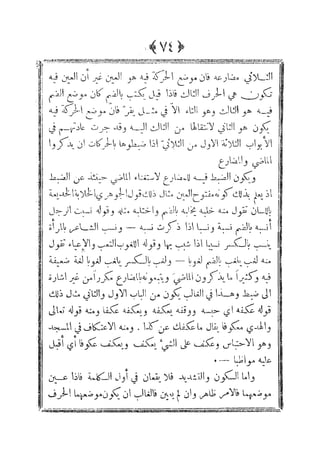 ﴿ ٧٤ ﴾
الثلاثي مضارعه فان موضع الحركة فيه هو العين غير أن العين فيه
تكون هي الحرف الثالث فاذا قيل يكتب بالضم كان موضع الضم
فيه هو الثالث وهو التاء الا في مثل يفر فان موضع الحركة فيه
يكون هو الثاني لانتقالها من الثالث اليه وقد جرت عادتهم في
الأبواب الثلاثة الاول من الثلاثي اذا ضبطوها بالحركات ان يذكروا
الماضي والمضارع
ويكون الضبط فيه للمضارع لاستغناء الماضي حينئذ عن الضبط
اذ يعلم بذلك كونه مفتوح العين مثال ذلك قول الجوهري الخلابة الخديعة
باللسان تقول منه خلبه يخلبه بالضم واختلبه مثله وقوله نسبت الرجل
أنسبه بالضم نسبة ونسبا اذا ذكرت نسبه — ونسب الشاعر بالمرأة
ينسب بالكسر نسيبا اذا شبب بها وقوله اللغوب التعب والإعياء تقول
منه لغب يلغب بالضم لغوبا — ولغب بالكسر يلغب لغوبا لغة ضعيفة
فيه وكثيراً ما يذكرون الماضي ويتبعونه بالمضارع مكرراً من غير اشارة
الى ضبط وهذا في الغالب يكون من الباب الاول والثاني مثال ذلك
قوله عكفه اي حبسه ووقفه يعكفه ويعكفه عكفا ومنه قوله تعالى
والهدي معكوفا يقال ما عكفك عن كذا . ومنه الاعتكاف في المسجد
وهو الاحتباس وعكف على الشيء يعكف ويعكف عكوفا أي أقبل
عليه مواظبا — ٠
واما السكون والتشديد فلا يقعان في أول الكلمة فاذا عين
موضعهما فالامر ظاهر وان لم يعين فالغالب ان يكون موضعهما الحرف